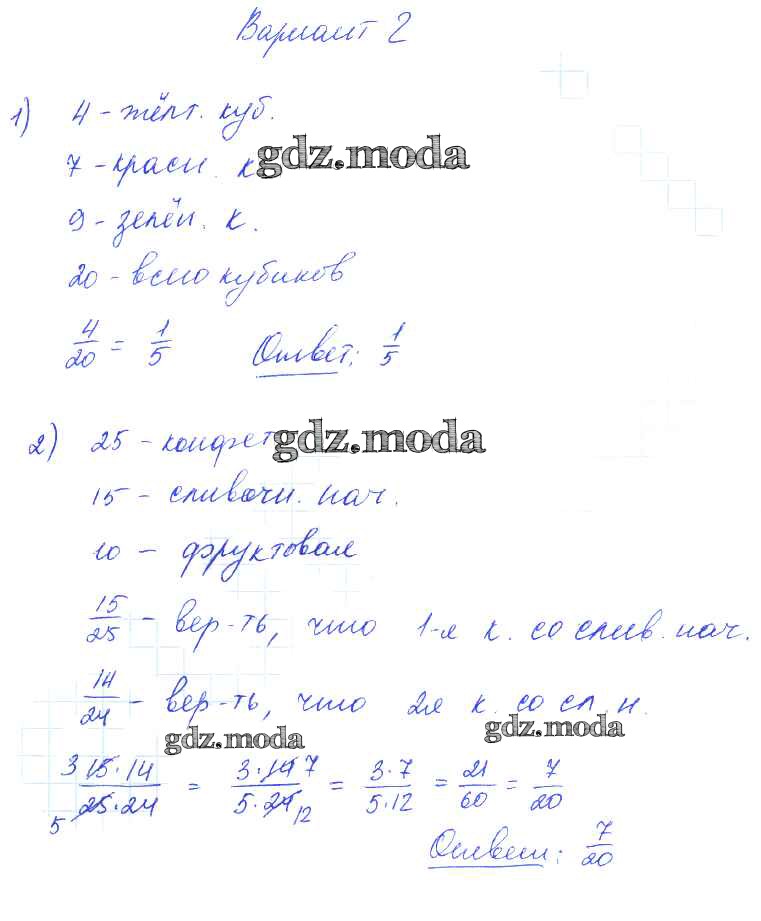 Вариант 2
1) 4 - жёлт. куб.
7 - красн. к gdz.moda
9 - зелён. к.
20 - всего кубиков
4/20 = 1/5 Ответ: 1/5
2) 25 - конфет gdz.moda
15 - сливочн. нач.
10 - фруктовая
15/25 - вер-ть, что 1-я к. со слив. нач.
14/24 - вер-ть, что 2я к. со сл. н.
gdz.moda gdz.moda
3 15·14 / 5 25·24 = 3·14 7 / 5·24 12 = 3·7/5·12 = 21/60 = 7/20
Ответ: 7/20